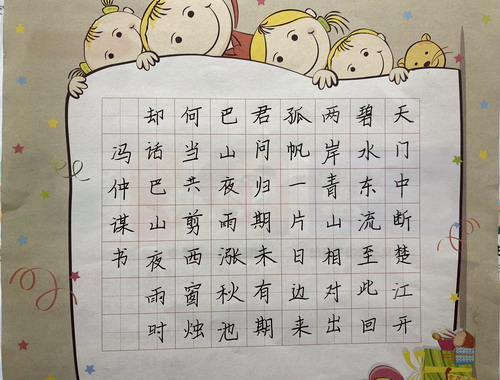 天门中断楚江开
碧水东流至此回
两岸青山相对出
孤帆一片日边来
君问归期未有期
巴山夜雨涨秋池
何当共剪西窗烛
却话巴山夜雨时
冯仲谋书